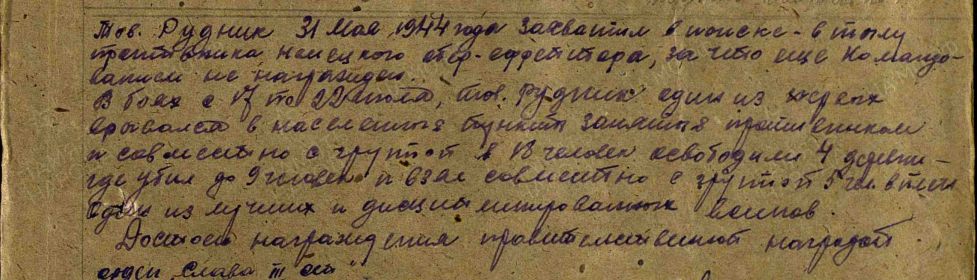 Тов. Рудник 31 Мая 1944 года захватил в поиске - в тылу
противника немецкого обер-ефрейтора, за что еще Командо-
ванием не награжден.
В боях с 17 по 22 июля, тов. Рудник один из первых
врывался в населенные пункты занятые противником
и совместно с группой в 18 человек освободили 4 деревни -
где убил до 9 человек и взял совместно с группой 5 чел в плен
Один из лучших и дисциплинированных воинов.
Достоен награждения правительственной наградой
орден "Слава III ст"